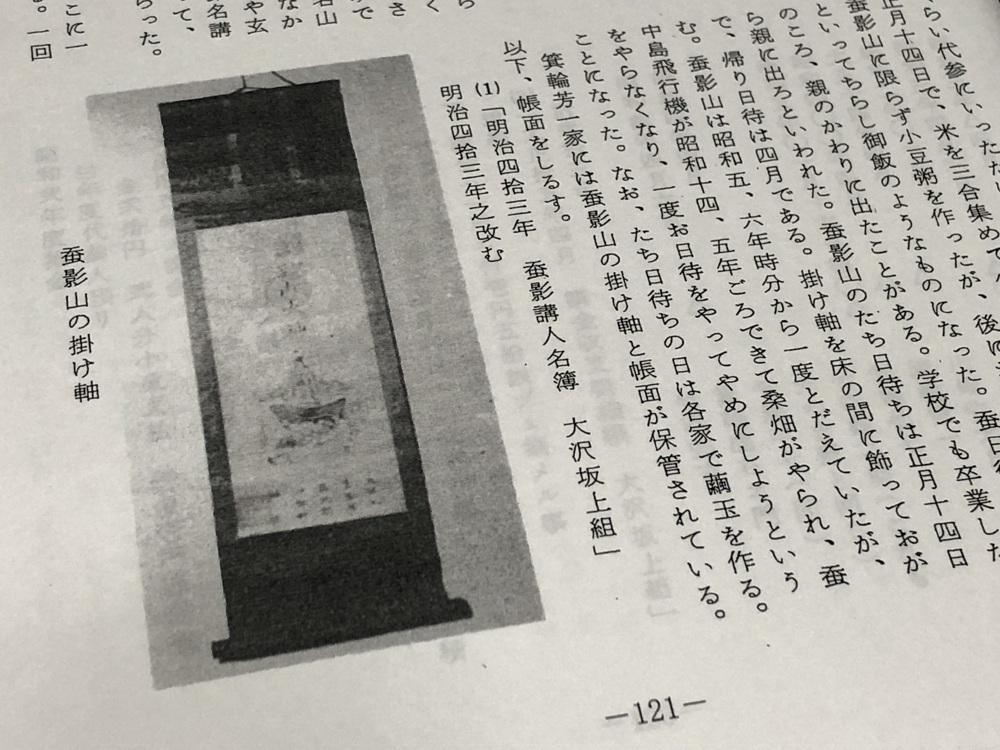 らい代参にいった
正月十四日で、米を三合集めて
蚕影山に限らず小豆粥を作ったが、後に
といってちらし御飯のようなものになった。蚕日待
のころ、親のかわりに出たことがある。学校でも卒業した
ら親に出ろといわれた。蚕影山のたち日待ちは正月十四日
で、帰り日待は四月である。掛け軸を床の間に飾っておが
む。蚕影山は昭和五、六年時分から一度とだえていたが、
中島飛行機が昭和十四、五年ごろできて桑畑がやられ、蚕
をやらなくなり、一度お日待をやってやめにしようという
ことになった。なお、たち日待ちの日は各家で繭玉を作る。
箕輪芳一家には蚕影山の掛け軸と帳面が保管されている。
以下、帳面をしるす。
(1)「明治四拾三年 蚕影講人名簿 大沢坂上組」
明治四拾三年之改む
ら
く
さ
で
名山
なか
や玄
名講
って、
らった。
こに一
る。一回
蚕影山の掛け軸
—121—